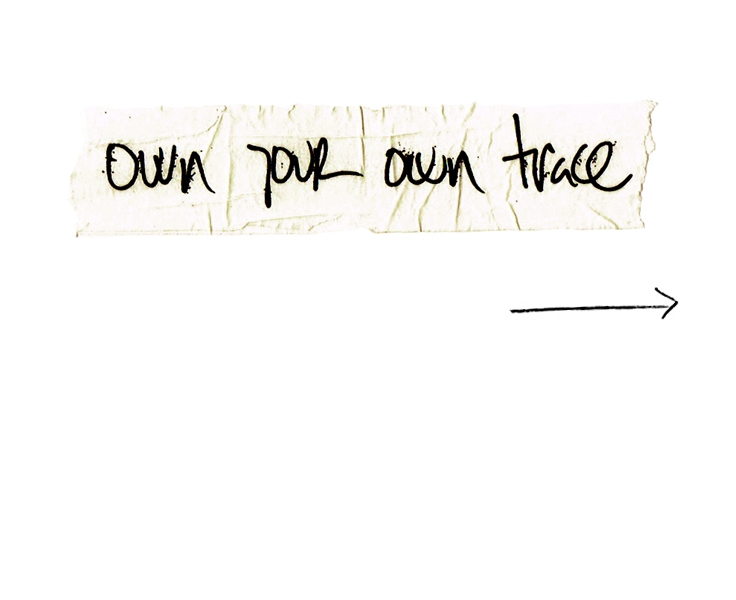 own your own trace